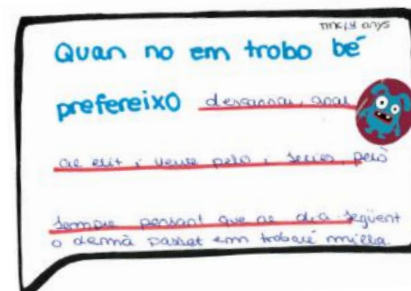 anys
Quan no em trobo bé
prefereixo descansar, anar
al llit i veure pelis i sèries però
sempre pensant que al dia següent
o demà passat em trobaré millor.